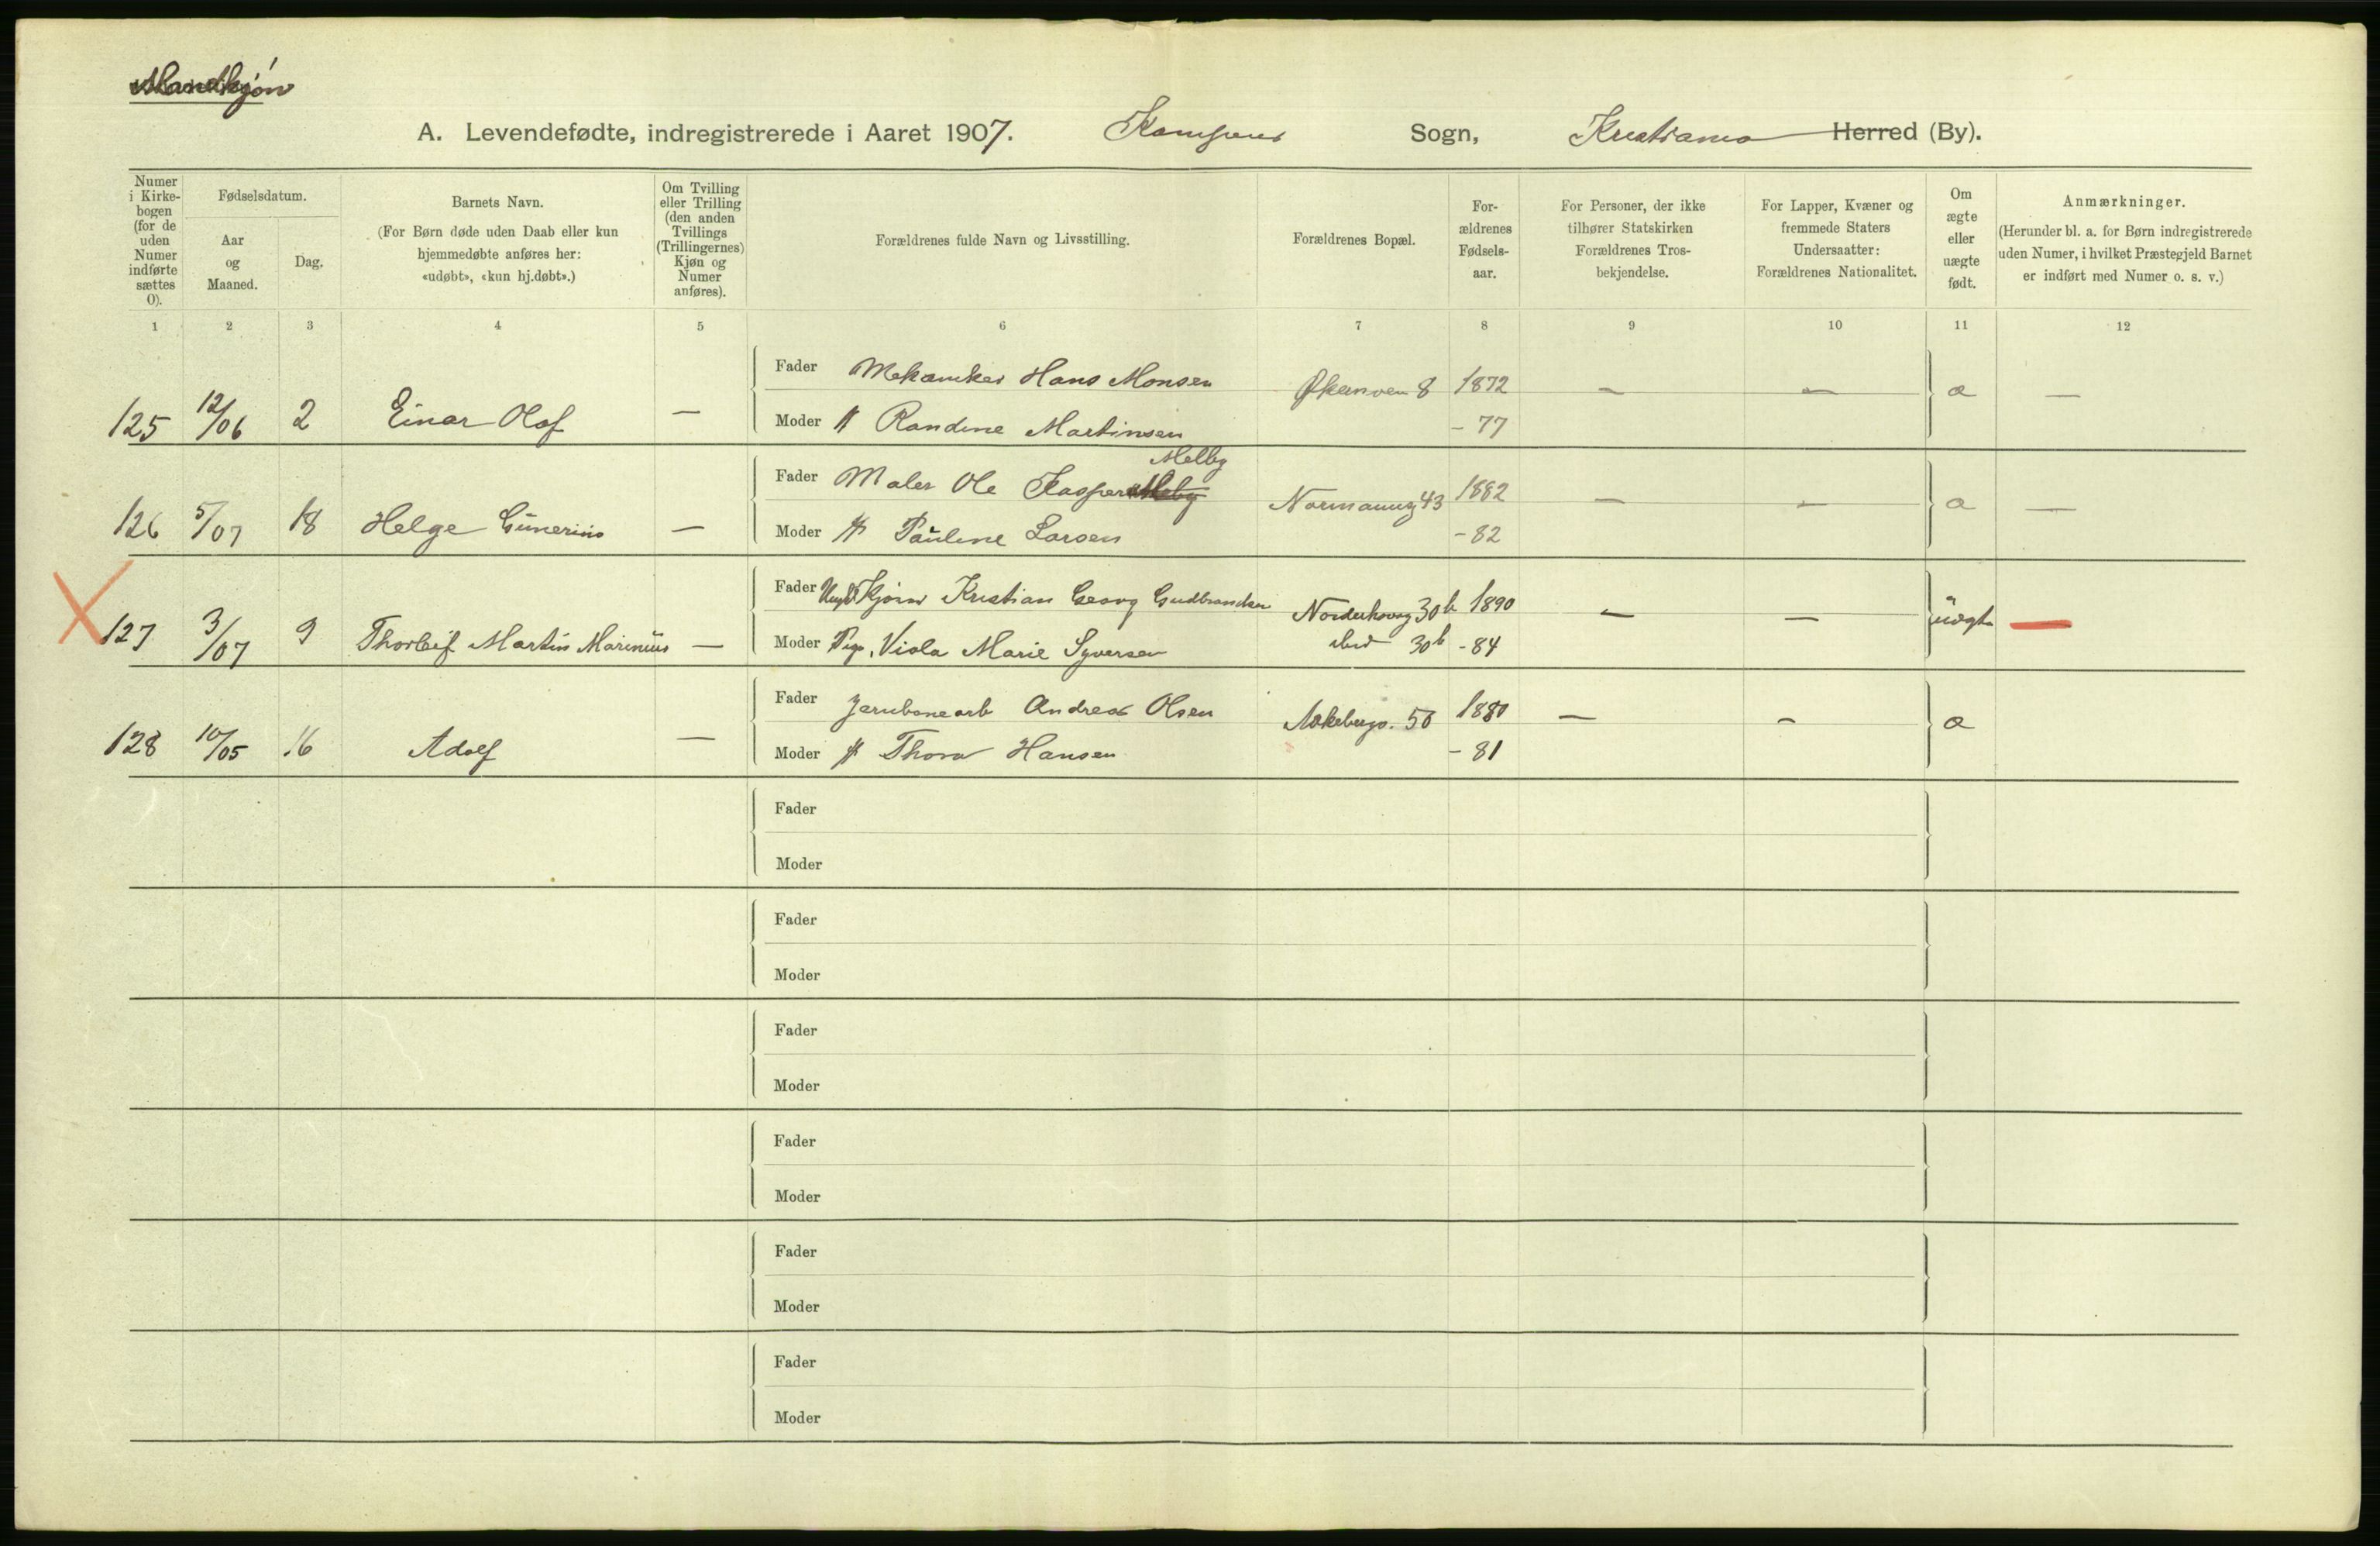 Mandkjøn
A. Levendefødte, indregistrerede i Aaret 1907. Kampens Sogn, Kristiania Herred (By).
Numer i Kirkebogen (for de uden Numer indførte sættes 0).
Fødselsdatum.
Aar og Maaned.
Dag.
Barnets Navn.
(For Børn døde uden Daab eller kun hjemmedøbte anføres her: «udøbt», «kun hj.døbt».)
Om Tvilling eller Trilling (den anden Tvillings (Trillingernes) Kjøn og Numer anføres).
Forældrenes fulde Navn og Livsstilling.
Forældrenes Bopæl.
Forældrenes Fødselsaar.
For Personer, der ikke tilhører Statskirken Forældrenes Trosbekjendelse.
For Lapper, Kvæner og fremmede Staters Undersaatter: Forældrenes Nationalitet.
Om ægte eller uægte født.
Anmærkninger.
(Herunder bl. a. for Børn indregistrerede uden Numer, i hvilket Præstegjeld Barnet er indført med Numer o. s. v.)
1 2 3 4 5 6 7 8 9 10 11 12
Fader Mekaniker Hans Monsen Økernven 8 1872 – – æ —
125 12/06 2 Einar Olaf — Moder Randine Martinsen - 77
Melby
Fader Maler Ole Kaspera Normanng 43 1882 – – æ —
126 5/07 18 Helge Gunerius — Moder Pauline Larsen - 82
Fader Kristian Georg Gudbrandsen Norderhovsg 30b 1890 – – uægte —
127 3/07 9 Thorleif Martin Marinius — Moder Pige, Viola Marie Syversen ibid 30b - 84
Fader Jernbanearb Andreas Olsen Aakebergv. 50 1880 – – æ
128 10/05 16 Adolf — Moder Thora Hansen - 81
Fader
Moder
Fader
Moder
Fader
Moder
Fader
Moder
Fader
Moder
Fader
Moder